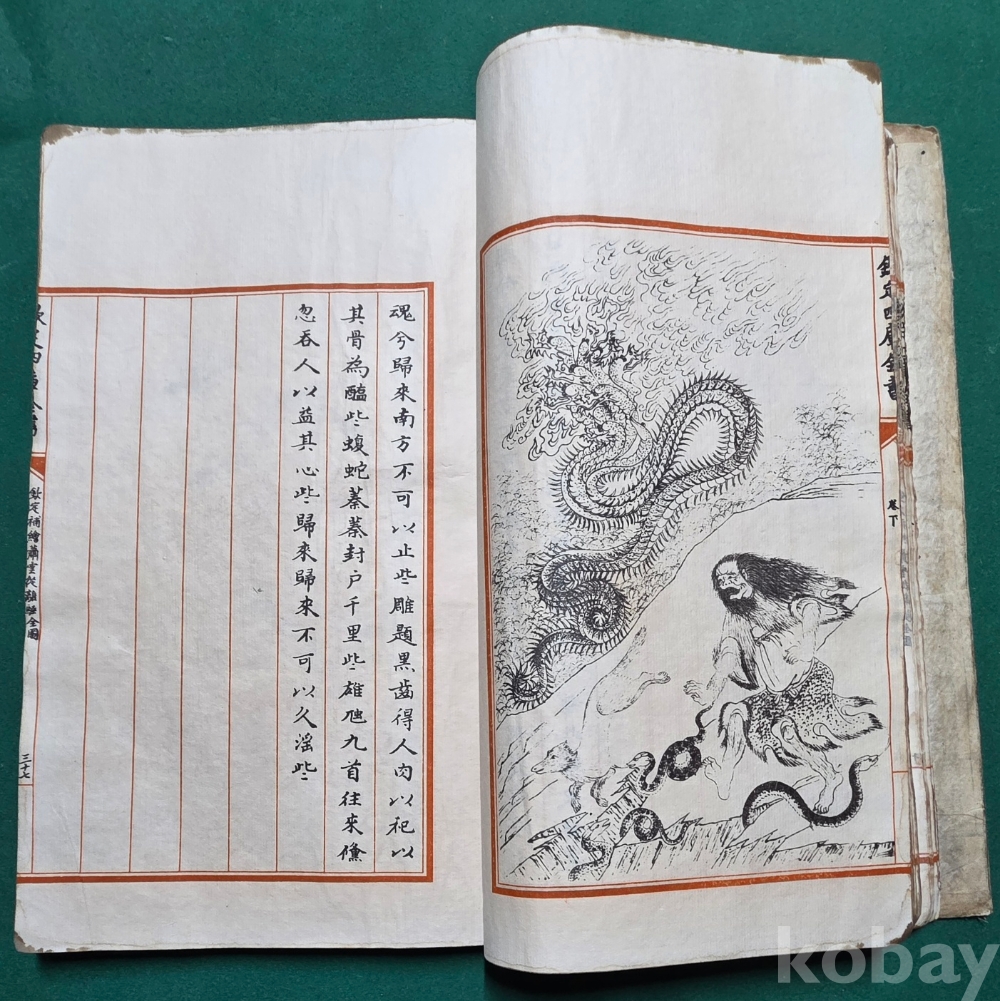 欽定四庫全書
卷下
魂兮歸來南方不可以止些雕題黑齒得人肉以祀以
其骨為醢些蝮蛇蓁蓁封户千里些雄虺九首往來儵
忽吞人以益其心些歸來歸來不可以久淫些
欽定補繪蕭雲從離騷全圖
三十七
kobay